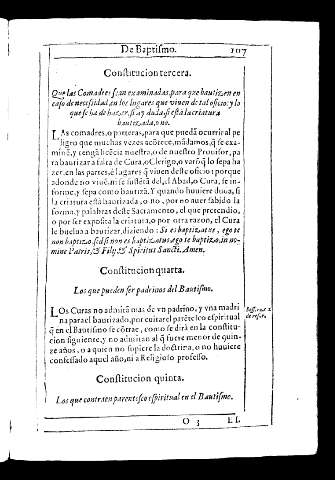 De Baptismo. 107
Constitucion tercera.
Que las Comadres sean examinadas, para que bautizen en
caso de necessidad, en los lugares que viuen de tal oficio: y lo
que se ha de hazer, si ay duda si està la criatura
bautizada, o no.
LAs comadres, o parteras, para que puedã ocurrir al pe
ligro que muchas vezes acõrece, mãdamos, q̃ se exa-
minẽ, y tengã licẽcia nuestra, o de nuestro Prouisor, pa
ra bautizar a falta de Cura, o Clerigo, o varõ q̃ lo sepa ha
zer, en las partes, è lugares q̃ viuen deste oficio: porque
adonde no viuẽ, ni se sustẽtã del, el Abad, o Cura, se in-
forme, y sepa como bautizã. Y quando huuiere duda, si
la criatura està bautizada, o no, por no auer sabido la
forma, y palabras deste Sacramento, el que pretendio,
o por ser exposita la criatura, o por otra razon, el Cura
le buelua a bautizar, diziendo: Si es baptizatus, ego te
non baptizo, sed si non es baptizatus, ego te baptizo, in no-
mine Patris, & Filij, & Spiritus Sancti. Amen.
Constitucion quarta.
Los que pueden ser padrinos del Bautismo.
LOs Curas no admitã mas de vn padrino, y vna madri
na para el bautizado, por euitar el parẽtesco espiritual
q̃ en el Bautismo se cõtrae, como se dirà en la constitu-
cion siguiente, y no admitan al q̃ fuere menor de quin-
ze años, o a quien no supiere la doctrina, o no huuiere
confessado aquel año, ni a Religioso professo.
de reform.
Constitucion quinta.
Los que contraen parentesco espiritual en el Bautismo.
O 3 LI.